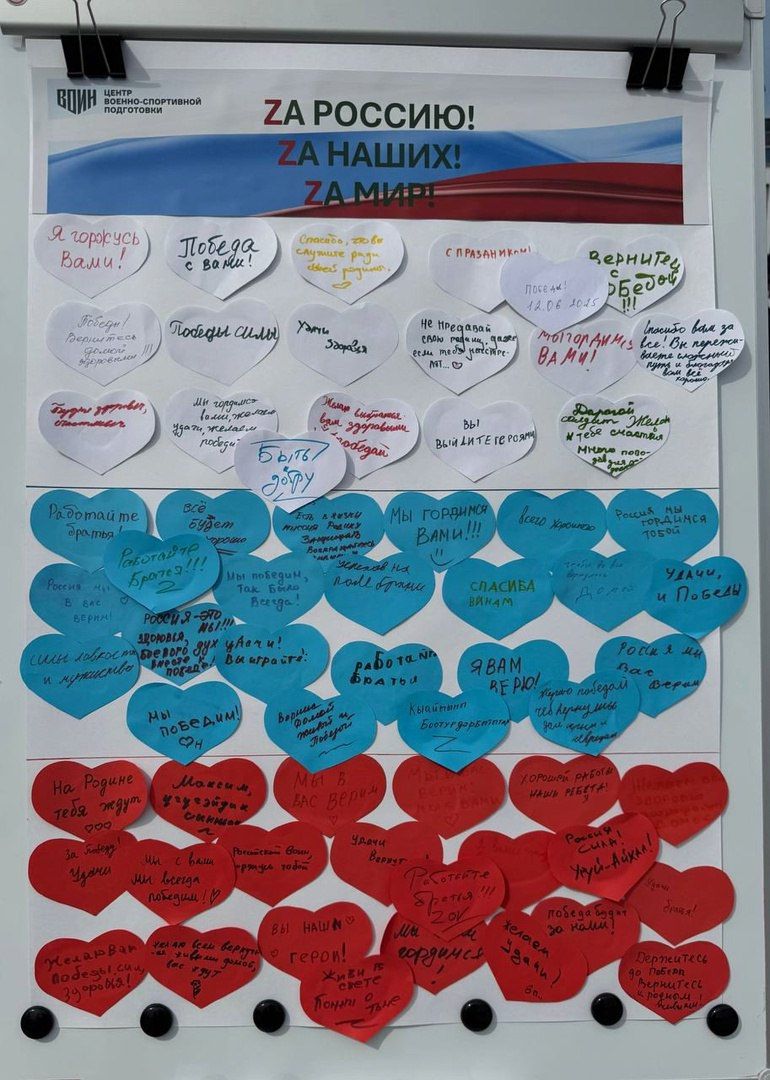 ВОИН
ЦЕНТР
ВОЕННО-СПОРТИВНОЙ
ПОДГОТОВКИ
ZА РОССИЮ!
ZА НАШИХ!
ZА МИР!
Я горжусь
Вами!
Победа
с вами!
Спасибо, что вы
служите ради
своей родины.
С ПРАЗДНИКОМ!
ПОБЕДЫ!
12.06.2025
ВЕРНИТЕСЬ
С
ПОБЕДОЙ
!!!
Победы!
Вернитесь
домой
здоровыми !!!
Победы силы
Удачи
Здоровья
Не предавай
свою родину, даже
если тебя
МЫ ГОРДИМСЯ
ВАМИ!
Спасибо вам за
всё! Вы
путь и
вам всё
хорошо.
Будьте здоровы,
Мы гордимся
вами, желаем
удачи, желаем
победы
Желаю
вам здоровыми
с победой
ВЫ
ВЫЙДИТЕ ГЕРОЯМИ
Дорогой
солдат Желаю
тебе счастья
много
Быть
добру
Работайте
братья!
Всё
будет
хорошо
Есть в жизни
миссия Родину
Защищать
МЫ ГОРДИМСЯ
ВАМИ!!!
всего хорошего
Россия мы
гордимся
тобой
Работайте
Братья!!!
Z
Россия мы
в вас
верим!
Мы победим,
Так Было
Всегда!
Успехов на
поле брани
СПАСИБА
ВИНАМ
Домой
УДАЧИ,
и ПОБЕДЫ
Силы ловкости
и мужества
РОССИЯ-ЭТО
МЫ!!!!
здоровья,
боевого духа
вместе к
победе!
удачи!
Выиграйте!
работайте
братья
Я ВАМ
ВЕРЮ!
Россия мы
Вас
Верим
МЫ
ПОБЕДИМ!
Вернись
домой
живой и
Победой
Кыайыыы
Z
победам
На Родине
тебя ждут
Максим,
Мы в
вас верим
Мы в вас
верим!
ХОРОШЕЙ РАБОТЫ
НАШЬ РЕБЕТА!
Желаем
За Победу!
Удачи
Мы с вами
Мы всегда
победим!
Российский Воин,
горжусь тобой
Удачи
Работайте
братья!!!
ZOV
РОССИЯ
СИЛА!
Уруй-Айхал!
Удачи
братья!
Желаю Вам
Победы, сил
Здоровья!
Желаю всем вернуться
живыми домой,
вас ждут
ВЫ НАШИ
ГЕРОИ!
Мы
гордимся!
Желаем
удачи!
Победа будет
за нами!
Живи в
свете
Помни о
тьме
Держитесь
до Победы
Вернитесь
к родным
живыми